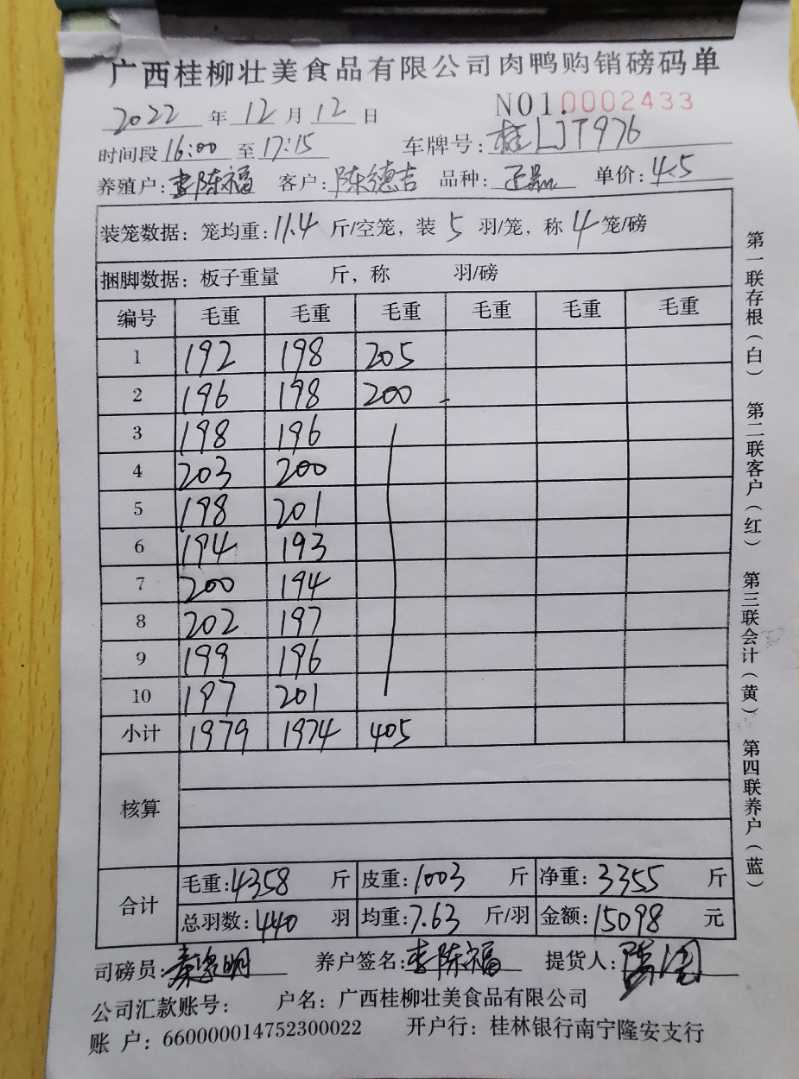 广西桂柳壮美食品有限公司肉鸭购销磅码单
2022 年 12 月 12 日 NO1.0002433
时间段 16:00 至 17:15 车牌号: 桂LJT976
养殖户: 李陈福 客户: 陈德吉 品种: 单价: 4.5
装笼数据: 笼均重: 11.4 斤/空笼, 装 5 羽/笼, 称 4 笼/磅
捆脚数据: 板子重量 斤, 称 羽/磅
编号 毛重 毛重 毛重 毛重 毛重 毛重
1 192 198 205
2 196 198 200
3 198 196
4 203 200
5 198 201
6 194 193
7 200 194
8 202 197
9 199 196
10 197 201
小计 1979 1974 405
核算
合计
毛重: 4358 斤 皮重: 1003 斤 净重: 3355 斤
总羽数: 440 羽 均重: 7.63 斤/羽 金额: 15098 元
司磅员: 养户签名: 李陈福 提货人:
公司汇款账号: 户名: 广西桂柳壮美食品有限公司
账 户: 660000014752300022 开户行: 桂林银行南宁隆安支行
第一联存根(白) 第二联客户(红) 第三联会计(黄) 第四联养户(蓝)